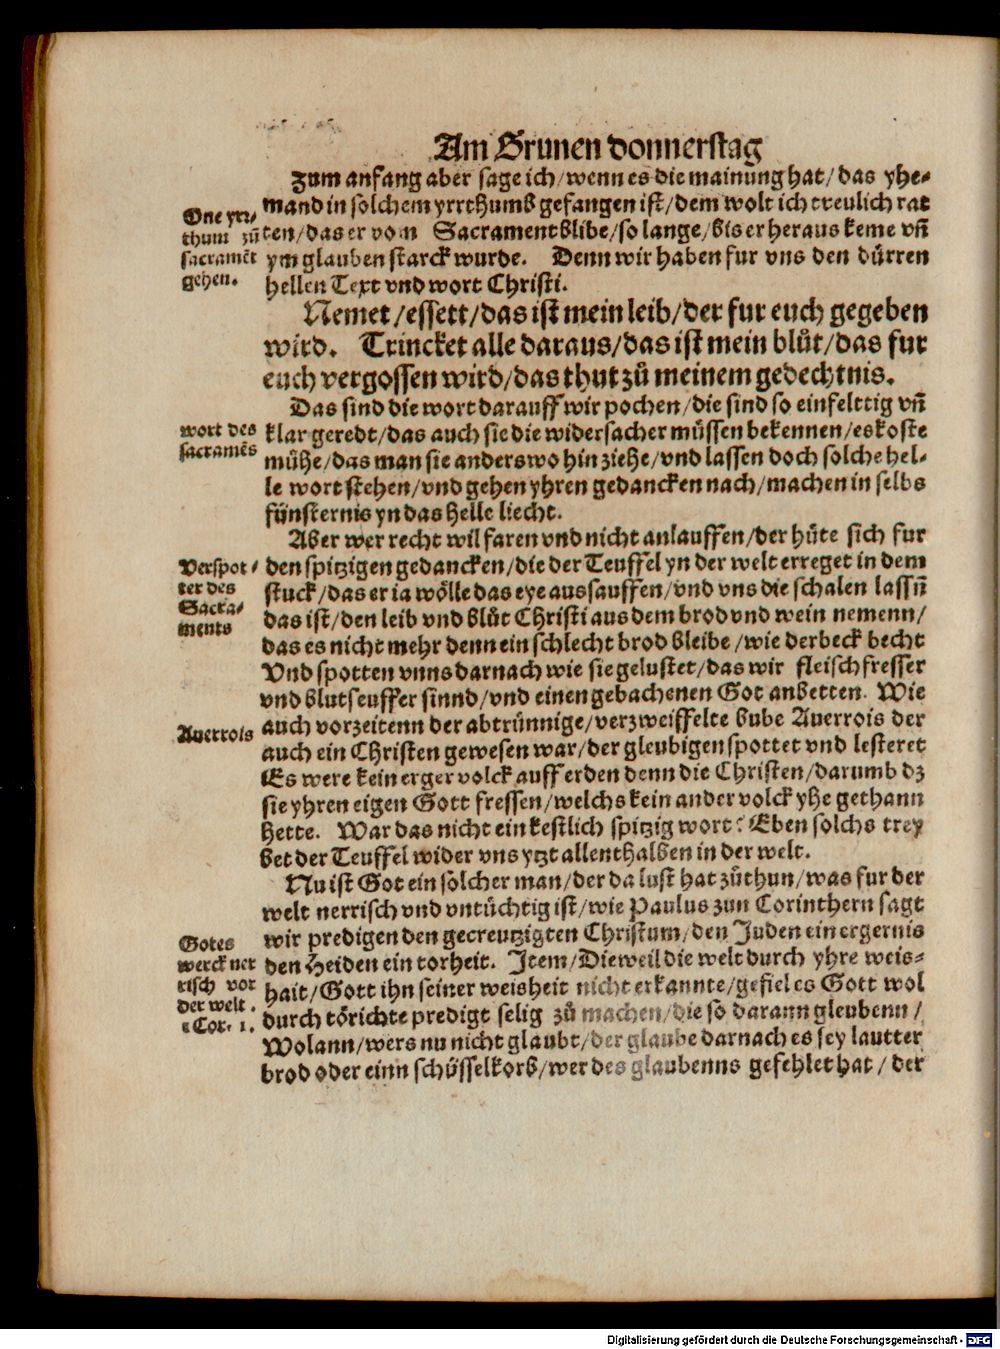 Am Grunen donnerstag
Zum anfang aber sage ich/wenn es die mainung hat/das yhe-
mand in solchem yrrthumb gefangen ist/dem wolt ich treulich rat
ten/das er vom Sacrament blibe/so lange/bis er heraus keme vñ
ym glauben starck wurde. Denn wir haben fur vns den dürren
hellen Text vnd wort Christi.
One yrr-
thum zů
sacramēt
gehen.
Nemet/essett/das ist mein leib/der fur euch gegeben
wird. Trincket alle daraus/das ist mein blůt/das fur
euch vergossen wird/das thut zů meinem gedechtnis.
Das sind die wort darauff wir pochen/die sind so einfelttig vñ
klar geredt/das auch sie die widersacher müssen bekennen/es koste
mühe/das man sie anderswo hin ziehe/vnd lassen doch solche hel-
le wort stehen/vnd gehen yhren gedancken nach/machen in selbs
fünsternis yn das helle liecht.
wort des
sacramēs
Aber wer recht wil faren vnd nicht anlauffen/der hüte sich fur
den spitzigen gedancken/die der Teuffel yn der welt erreget in dem
stuck/das er ia wölle das eye aussauffen/vnd vns die schalen lassñ
das ist/den leib vnd blůt Christi aus dem brod vnd wein nemenn/
das es nicht mehr denn ein schlecht brod bleibe/wie der beck becht
Vnd spotten vnns darnach wie sie gelustet/das wir fleischfresser
vnd blutseuffer sinnd/vnd einen gebachenen Got anbetten. Wie
auch vorzeitenn der abtrünnige/verzweiffelte bube Auerrois der
auch ein Christen gewesen war/der gleubigen spottet vnd lesteret
Es were kein erger volck auff erden denn die Christen/darumb dz
sie yhren eigen Gott fressen/welchs kein ander volck yhe gethann
hette. War das nicht ein kestlich spitzig wort? Eben solchs trey
bet der Teuffel wider vns ytzt allenthalben in der welt.
Verspot-
ter des
Sacra-
ments
Auerrois
Nu ist Got ein solcher man/der da lust hat zůthun/was fur der
welt nerrisch vnd vntüchtig ist/wie Paulus zun Corinthern sagt
wir predigen den gecreutzigten Christum/den Juden ein ergernis
den Heiden ein torheit. Item/Dieweil die welt durch yhre weis-
hait/Gott ihn seiner weisheit nicht erkannte/gefiel es Gott wol
durch törichte predigt selig zů machen/die so darann gleubenn/
Wolann/wers nu nicht glaubt/der glaube darnach es sey lautter
brod oder einn schüsselkorb/wer des glaubenns gefehlet hat/der
Gotes
werck ner
risch vor
der welt.
1 Cor. 1.
Digitalisierung gefördert durch die Deutsche Forschungsgemeinschaft - DFG